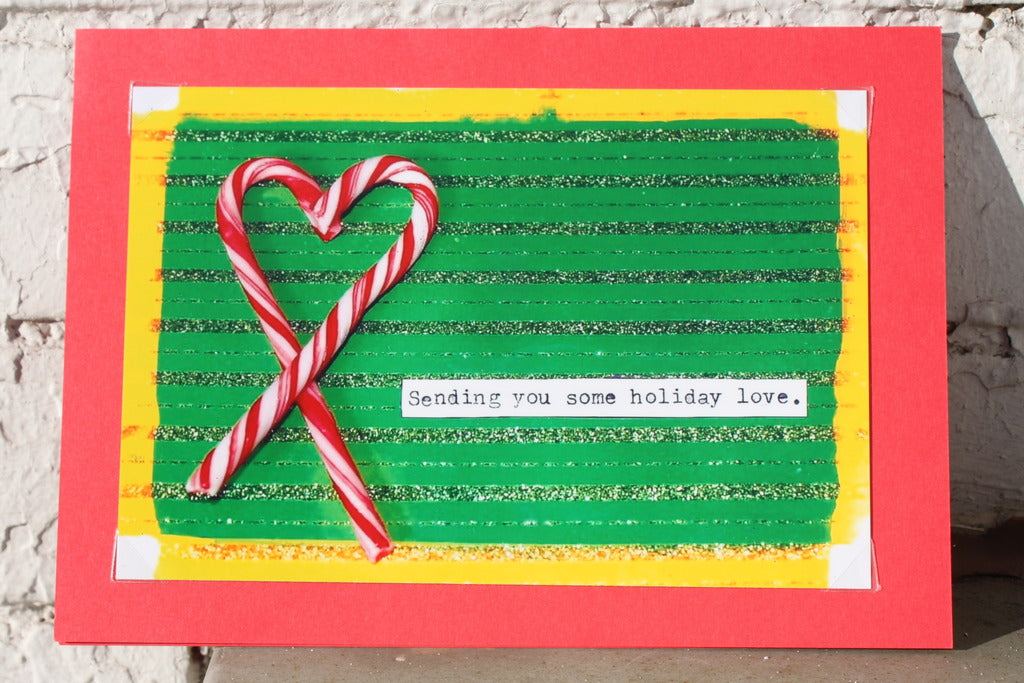 Sending you some holiday love.